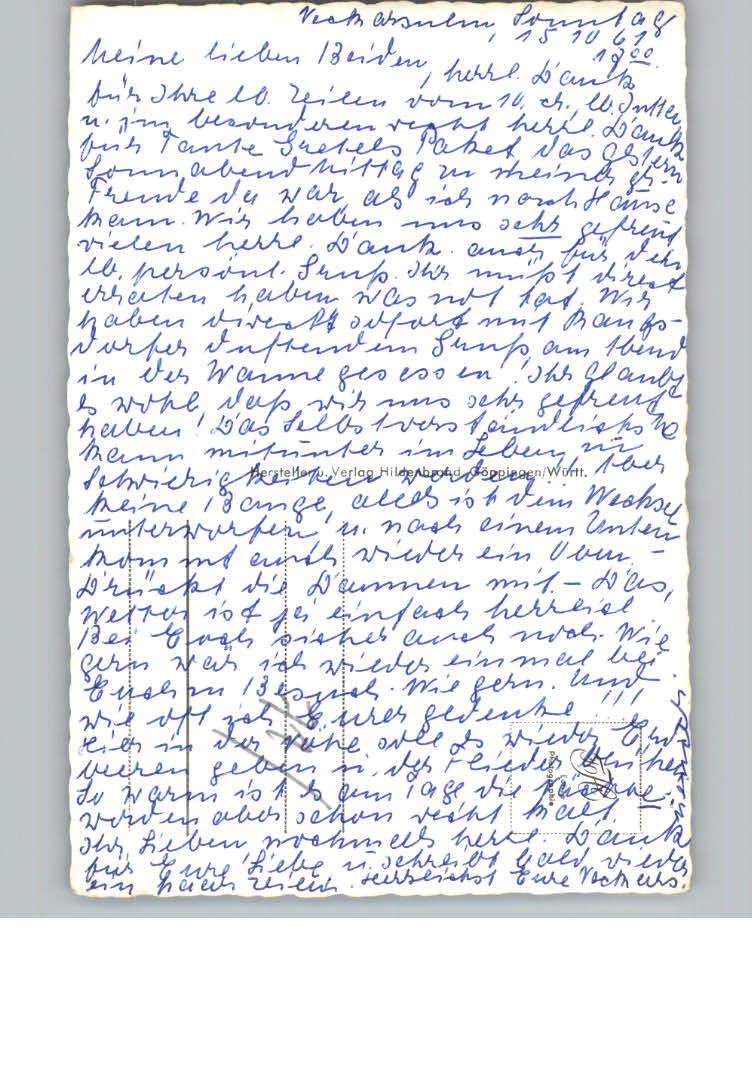 Neckarsulm Sonntag
, 15 10 61
17⁰⁰
Meine lieben Beiden, herzl. Dank
für Ihre lb. Zeilen vom 10. ds. lb. Jutta
u. im besonderen recht herzl. Dank
für Tante Gretels Paket das gestern
Sonnabend Mittag zu meiner gr.
Freude da war, als ich nach Hause
kam. Wir haben uns sehr gefreut
vielen herzl. Dank auch für den
lb. persönl. Gruß. Ihr müßt direkt
erraten haben was not tat. Wir
haben direkt sofort mit
dorfer duftendem Gruß am Abend
in der Wanne gesessen! Ihr glaubt
es wohl daß wir uns sehr gefreut
haben! Das Selbstverständlichste
kann mitunter im Leben zu
Schwierigkeiten werden, Aber
keine Bange, alles ist dem Wechsel
unterworfen, u. nach einem Unten
kommt auch wieder ein Oben. –
Drückt die Daumen mit. – Das,
Wetter ist ja einfach herrlich
Bei Euch sicher auch noch. Wie
gern wär ich wieder einmal bei
Euch zu Besuch. Wie gern. Und
wie oft ich Eurer gedenke!!!
Hier in der Nähe soll es wieder Erd
beeren geben u. der Flieder
So warm ist es am Tage die
werden aber schon recht kalt.
Ihr Lieben nochmals herzl. Dank
für Eure Liebe u. schreibt bald wieder
ein paar Zeilen. Herzlichst Eure
Hersteller u. Verlag Hildenbrand, Göppingen/Württ.
Echte
Photographie